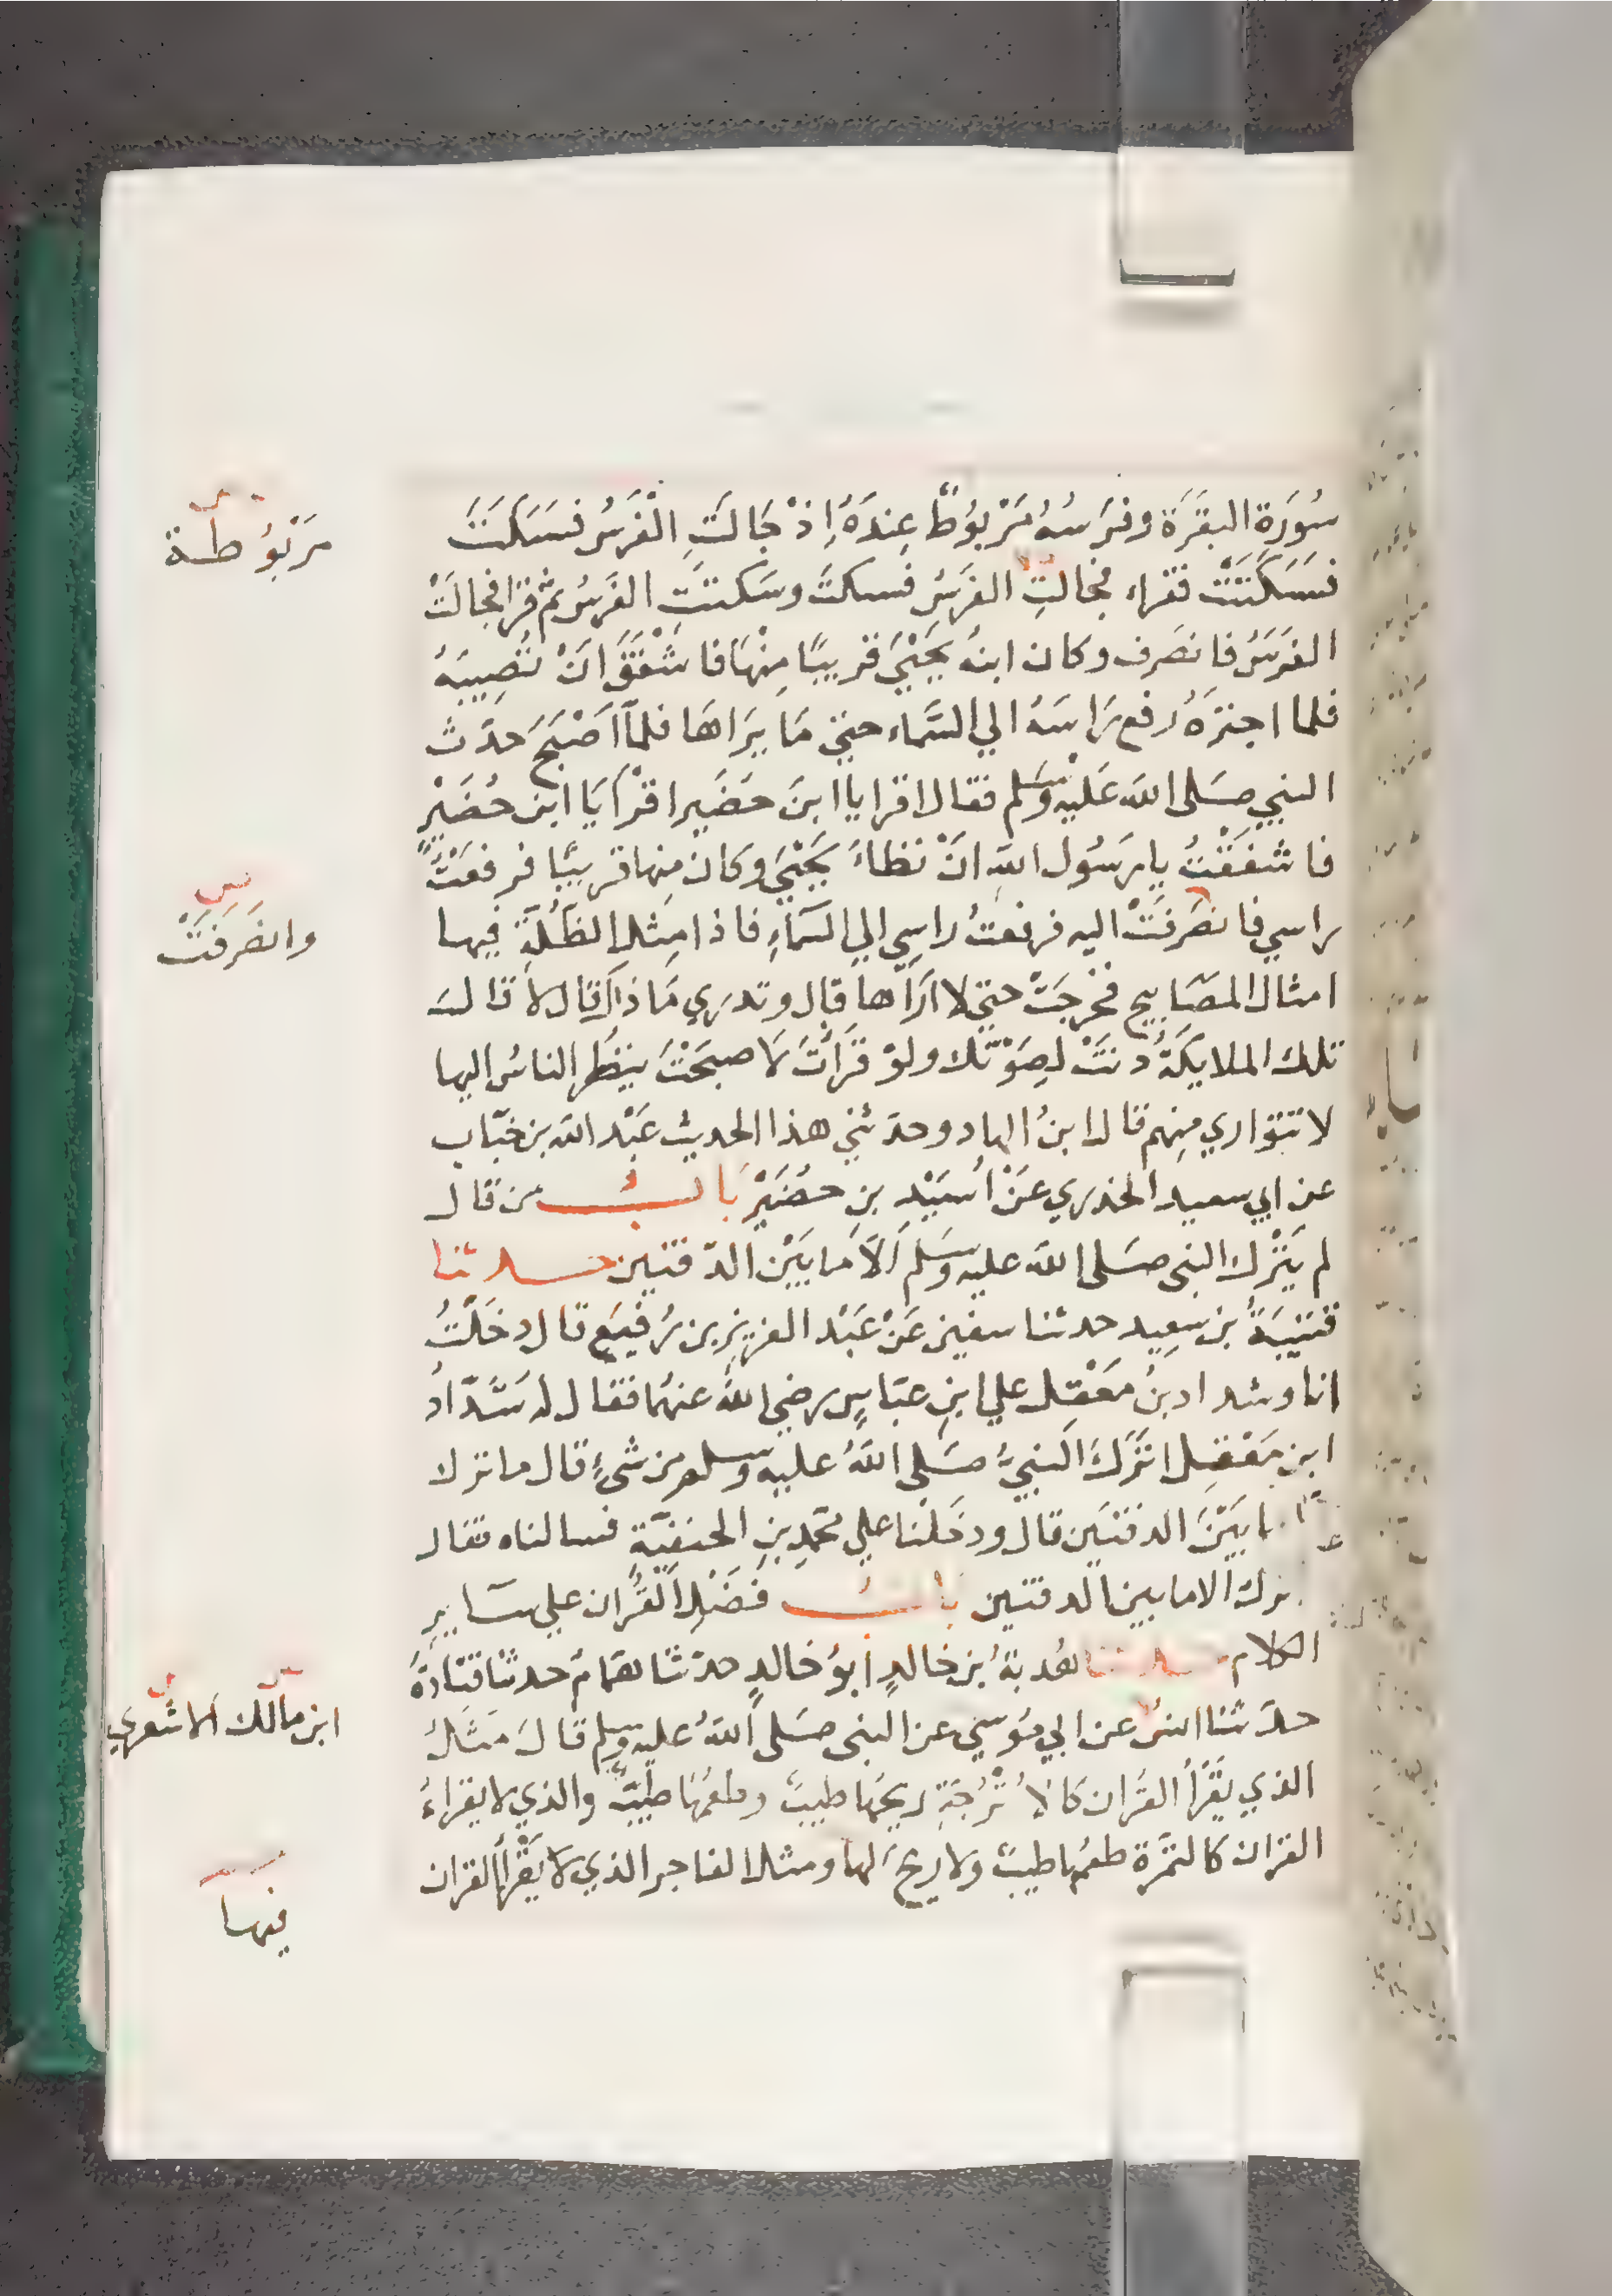 سُورَة البقَرَة وفرَسُهُ مَرْبوُطٌ عِندَهُ اِذْ جَالَتِ الْفَرَسُ فسَكَتَ
فسَكَتَتْ فقراء فجالتِ الفرَسُ فسكتَ وسَكتَتِ الفَرسُ ثم قرا فجالَتْ
الفَرَسُ فانصَرف وكان ابنهُ يَحْيَى قريبًا مِنْهَا فاشْفَقَ اَنْ تُصِيبَهُ
فلما اجترَهُ رفع رَاسَهُ الي السَّماء حتي مَا يَرَاهَا فلمّا اَصْبَحَ حدّث
النبي صَلى الله عَليه وسَلم فقال اقرا يا ابنَ حضَير اقرْا يَا ابن حُضَيْرٍ
فاشفَقْتُ يا رسَول اللهِ انْ تطاَ يَحْيَى وكان مِنها قريبًا فرفعْتُ
راسي فانصَرفتُ اليه فرفعتُ راسِي الي السّمآءِ فاذا مِثل الظُلَّةِ فيها
امثال المصَابيح فخرجَتْ حتي لا اَرَاها قال وتدرِي مَا ذاك قال لا قال
تلك الملايكَةُ دنَتْ لصَوْتك ولوْ قرَاْتَ لاَصبحَتْ ينظُر الناسُ اليها
لا تتواري مِنهم قال ابنُ الهاد وحدثني هذا الحديث عَبْد الله بن خبّاب
عن ابي سعيد الخدري عَنْ اُسَيْدِ بنِ حضَيْرٍ بَابُ من قال
لم يَتْرُك النبي صَلى الله عليه وسَلم اِلاّ مَا بَيْنَ الدّفتين حدثنا
قتيبَةُ بن سعِيد حدثنا سفين عَنْ عَبْد العزيزِ بن رُفيَع قال دخَلْتُ
انا وشداد بنُ مَعْقِل علي ابنِ عبّاسٍ رضي اللهُ عنهُما فقال له شَدّادُ
ابن مَعْقِل اتَرَكَ النبيُّ صَلى اللهُ عليه وسلم من شىءٍ قال ما ترك
اِلاّ مَا بَيْنَ الدفتَين قال ودخَلْنا علي محمّدِ بنِ الحنفيَّةِ فسالناه فقال
ما ترك الا ما بين الدفتين بابُ فضَلِ القُران علي سَايرِ
الكلام حدثنا هُدبةُ بن خالدٍ ابوُ خالدٍ حدّثنا همّامٌ حدثنا قتَادةُ
حدّثنا انسُ عن ابي مُوسي عن النبي صَلى اللهُ عليه وسلم قالَ مَثلُ
الذي يَقْرَأُ القرُان كالاُتْرُجّةِ ريحُها طيبٌ وطعمُهَا طيّبٌ والذي لا يقراءُ
القران كالتمْرَة طعمُها طيبٌ ولا ريحَ لها ومثل الفاجر الذي لا يَقْرأُ القران
مَرْبوُطة
وانصَرَفتُ
ابن مالك الاشعري
فيها